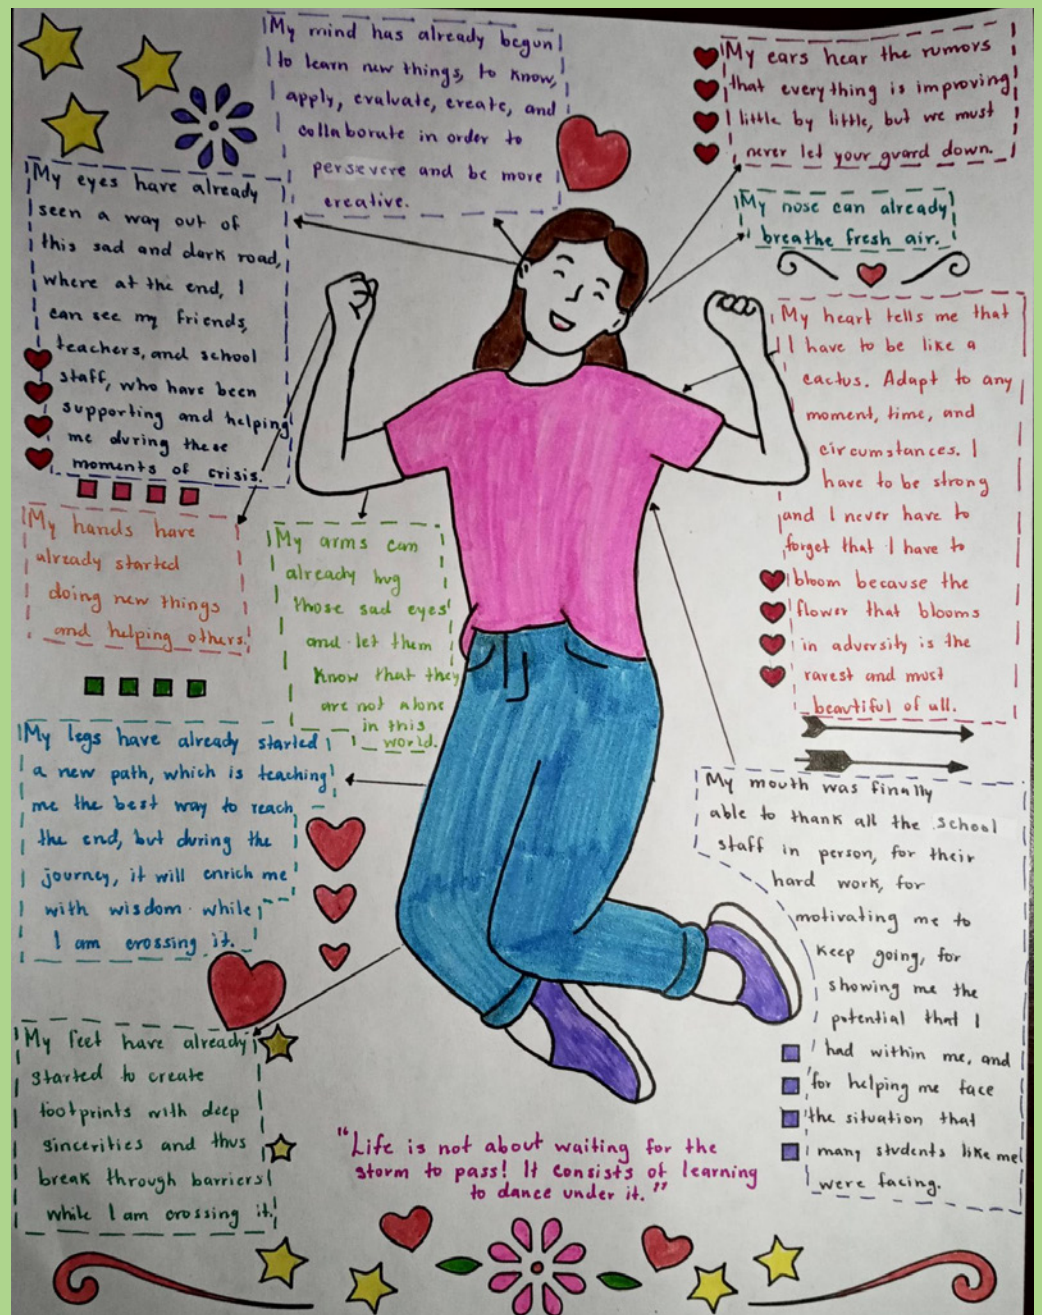 My mind has already begun
to learn new things, to know,
apply, evaluate, create, and
collaborate in order to
persevere and be more
creative.
My ears hear the rumors
that everything is improving
little by little, but we must
never let your guard down.
My eyes have already
seen a way out of
this sad and dark road,
where at the end, I
can see my friends,
teachers, and school
staff, who have been
supporting and helping
me during these
moments of crisis.
My nose can already
breathe fresh air.
My heart tells me that
I have to be like a
cactus. Adapt to any
moment, time, and
circumstances. I
have to be strong
and I never have to
forget that I have to
bloom because the
flower that blooms
in adversity is the
rarest and most
beautiful of all.
My hands have
already started
doing new things
and helping others.
My arms can
already hug
those sad eyes
and let them
know that they
are not alone
in this
world.
My legs have already started
a new path, which is teaching
me the best way to reach
the end, but during the
journey, it will enrich me
with wisdom while
I am crossing it.
My mouth was finally
able to thank all the school
staff in person, for their
hard work, for
motivating me to
keep going, for
showing me the
potential that I
had within me, and
for helping me face
the situation that
many students like me
were facing.
My feet have already
started to create
footprints with deep
sincerities and thus
break through barriers
while I am crossing it.
"Life is not about waiting for the
storm to pass! It consists of learning
to dance under it."